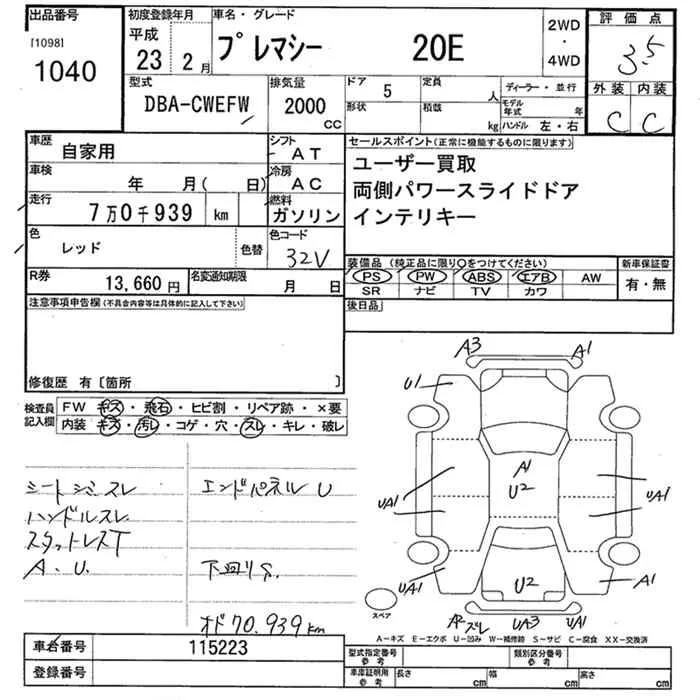 出品番号
[1098]
1040
初度登録年月
平成
23 2月
車名・グレード
プレマシー 20E
2WD
・
4WD
評価点
3.5
外装 内装
C C
型式
DBA-CWEFW
排気量
2000
cc
ドア 5
定員 人
形状
積載 kg
ディーラー・並行
モデル年式 年
ハンドル 左・右
車歴 自家用
シフト AT
車検 年 月( 日)
冷房 AC
走行 7万0千939 km
燃料 ガソリン
色 レッド 色替
色コード 32V
R券 13,660円
名変通知期限 月 日
セールスポイント(正常に機能するものに限ります)
ユーザー買取
両側パワースライドドア
インテリキー
装備品(純正品に限り○をつけてください)
PS PW ABS エアB AW
SR ナビ TV カワ
新車保証書
有・無
後日品
注意事項申告欄(不具合内容等は具体的に記入して下さい)
修復歴 有〔箇所 〕
検査員記入欄
FW キズ・飛石・ヒビ割・リペア跡・×要
内装 キズ・汚レ・コゲ・穴・スレ・キレ・破レ
シートシミスレ
ハンドルスレ
スタットレスT
A. U.
エンドパネル U
下回りS.
オド70.939km
A3 A1
U1
A1
U2
UA1 UA1
UA1 UA1
UA1 U2 A1
スペア
ズレ UA3 UA1
A―キズ E―エクボ U―凹み W―補修跡 S―サビ C―腐食 XX―交換済
車台番号 115223
登録番号
型式指定番号 参考
類別区分番号 参考
車庫証明用 参考 長さ cm 幅 cm 高さ cm